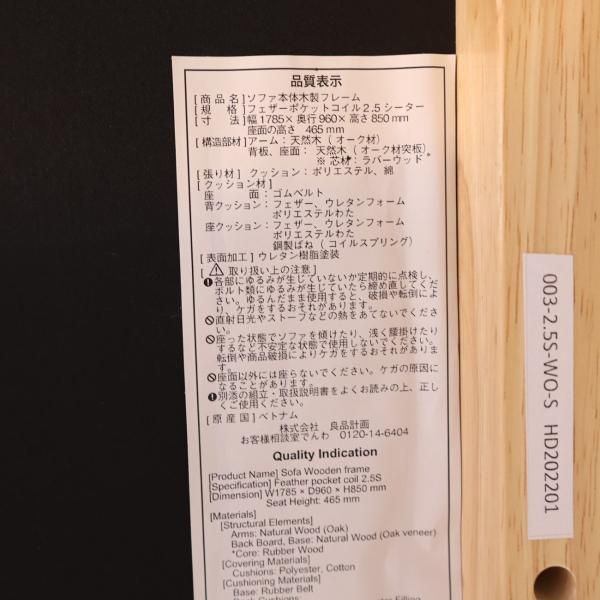 品質表示
[ 商 品 名 ] ソファ本体木製フレーム
[ 規　 格 ] フェザーポケットコイル2.5シーター
[ 寸　 法 ] 幅1785× 奥行 960× 高さ 850 mm
座面の高さ　465 mm
[ 構造部材 ] アーム：天然木（ オーク材）
背板、座面：　天然木（ オーク材突板）
※ 芯材：ラバーウッド
[ 張り材 ] クッション：ポリエステル、綿
[ クッション材 ]
座　　　面：ゴムベルト
背クッション：フェザー、ウレタンフォーム
ポリエステルわた
座クッション：フェザー、ウレタンフォーム
ポリエステルわた
鋼製ばね（ コイルスプリング）
[ 表面加工 ] ウレタン樹脂塗装
[ ⚠ 取り扱い上の注意 ]
各部にゆるみが生じていないか定期的に点検し、
ボルト類にゆるみが生じていたら締め直してくだ
さい。ゆるんだまま使用すると、破損や転倒によ
り、ケガをするおそれがあります。
直射日光やストーブなどの熱をあてないでくださ
い。
座った状態でソファを傾けたり、浅く腰掛けたり
するなど不安定な状態で使用しないでください。
転倒や商品破損によりケガをするおそれがありま
す。
座面以外には座らないでください。ケガの原因に
なることがあります。
別添の組立・取扱説明書をよくお読みの上、正し
くご使用ください。
[ 原 産 国 ] ベトナム
株式会社　良品計画
お客様相談室でんわ　0120-14-6404
Quality Indication
[Product Name] Sofa Wooden frame
[Specification] Feather pocket coil 2.5S
[Dimension] W1785 × D960 × H850 mm
Seat Height: 465 mm
[Materials]
[Structural Elements]
Arms: Natural Wood (Oak)
Back Board, Base: Natural Wood (Oak veneer)
*Core: Rubber Wood
[Covering Materials]
Cushions: Polyester, Cotton
[Cushioning Materials]
Base: Rubber Belt
003-2.5S-WO-S HD202201